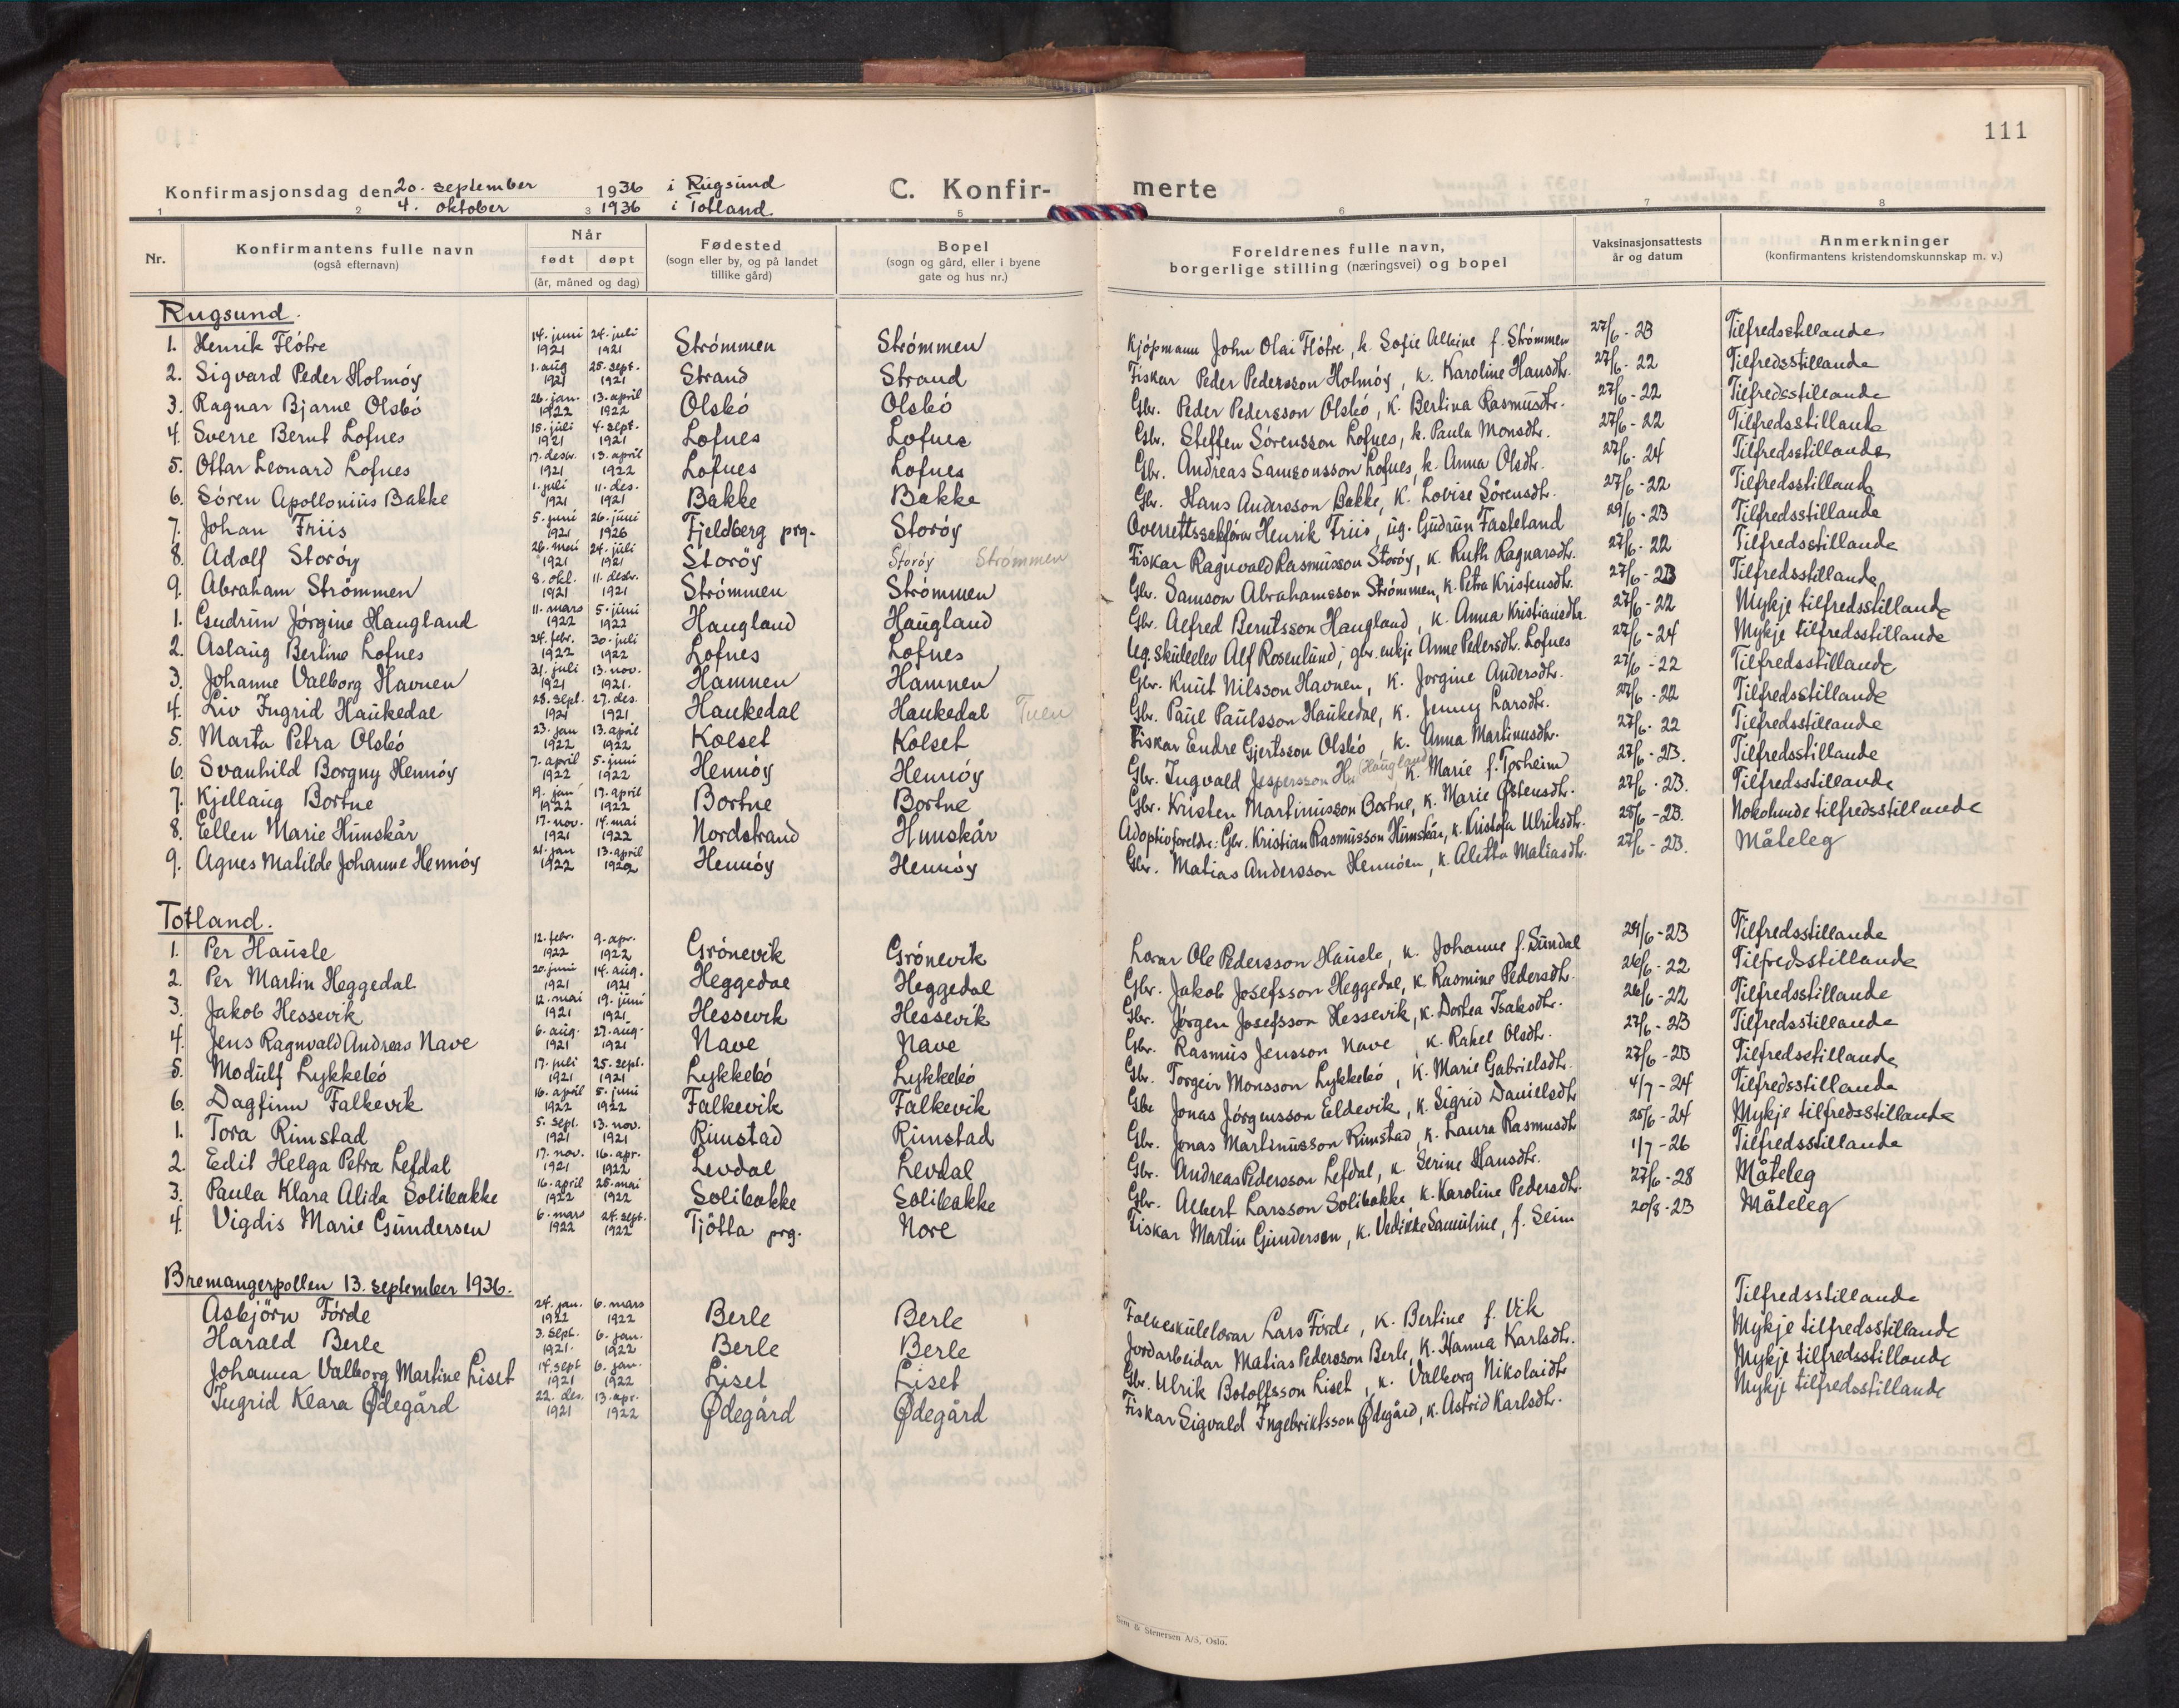 111
Konfirmasjonsdag den 20. september 1936 i Rugsund
4. oktober 1936 i Totland.
C. Konfir- merte
1 2 3 5 6 7 8
Nr.
Konfirmantens fulle navn
(også efternavn)
Når
født døpt
(år, måned og dag)
Fødested
(sogn eller by, og på landet
tillike gård)
Bopel
(sogn og gård, eller i byene
gate og hus nr.)
Foreldrenes fulle navn,
borgerlige stilling (næringsvei) og bopel
Vaksinasjonsattests
år og datum
Anmerkninger
(konfirmantens kristendomskunnskap m. v.)
Rugsund.
1. Henrik Flótre 14. juni 1921 24. juli 1921 Strómmen Strómmen Kjópmann John Olai Flótre, k. Sofie Alvine f. Strómmen 27/6 - 23 Tilfredsstillande
2. Sigvard Peder Holmóy 1. aug 1921 25. sept. 1921 Strand Strand Fiskar Peder Pedersson Holmóy, k. Karoline Hansdtr. 27/6 - 22 Tilfredsstillande
3. Ragnar Bjarne Olsbó 26. jan. 1922 13. april 1922 Olsbó Olsbó Gbr. Peder Pedersson Olsbó, k. Bertina Rasmusdtr. 27/6 - 22 Tilfredsstillande
4. Sverre Bernt Lofnes 15. juli 1921 4. sept. 1921 Lofnes Lofnes Gbr. Steffen Sórensson Lofnes, k. Paula Monsdtr. 27/6 - 22 Tilfredsstillande
5. Ottar Leonard Lofnes 17. desbr. 1921 13. april 1922 Lofnes Lofnes Gbr. Andreas Samsonsson Lofnes, k. Anna Olsdtr. 27/6 - 24 Tilfredsstillande
6. Sóren Apollonius Bakke 1. juli 1921 11. des. 1921 Bakke Bakke Gbr. Hans Andersson Bakke, k. Lovise Sórensdtr. 27/6 - 22 Tilfredsstillande
7. Johan Friis 5. juni 1921 26. juni 1926 Fjeldberg prg. Storóy Overrettssakfórar Henrik Friis, ug. Gudrun Fasteland 29/6 - 23 Tilfredsstillande
8. Adolf Storóy 26. mai 1921 24. juli 1921 Storóy Storóy Strømmen Fiskar Ragnvald Rasmusson Storóy, k. Ruth Ragnarsdtr. 27/6 - 22 Tilfredsstillande
9. Abraham Strómmen 8. okt. 1921 11. desbr. 1921 Strómmen Strómmen Gbr. Samson Abrahamsson Strómmen, k. Petra Kristensdtr. 27/6 - 23 Tilfredsstillande
1. Gudrun Jórgine Haugland 11. mars 1922 5. juni 1922 Haugland Haugland Gbr. Alfred Berntsson Haugland, k. Anna Kristiansdtr. 27/6 - 22 Mykje tilfredsstillande
2. Aslaug Bertine Lofnes 24. febr. 1922 30. juli 1922 Lofnes Lofnes Ug. skuleelev Alf Rosenlund, gbr. enkje Anne Pedersdtr. Lofnes 27/6 - 24 Mykje tilfredsstillande
3. Johanne Valborg Havnen 31. juli 1921 13. nov. 1921. Hamnen Hamnen Gbr. Knut Nilsson Havnen, k. Jorgine Andersdtr. 27/6 - 22 Tilfredsstillande
4. Liv Ingrid Haukedal 28. sept. 1921 27. des. 1921 Haukedal Haukedal Tuen Gbr. Paul Paulsson Haukedal, k. Jenny Larsdtr. 27/6 - 22 Tilfredsstillande
5. Marta Petra Olsbó 23. jan 1922 13. april 1922 Kolset Kolset Fiskar Endre Gjertsson Olsbó, k. Anna Martinusdtr. 27/6 - 22 Tilfredsstillande
6. Svanhild Borgny Hennóy 7. april 1922 5. juni 1922 Hennóy Hennóy Gbr. Ingvald Jespersson (Haugland) k. Marie f. Torheim 27/6 - 23. Tilfredsstillande
7. Kjellaug Bortne 19. jan 1922 17. april 1922 Bortne Bortne Gbr. Kristen Martinusson Bortne, k. Marie Østensdtr. 27/6 - 23. Tilfredsstillande
8. Ellen Marie Hunskår 17. nov. 1921 14. mai 1922 Nordstrand Hunskår Adoptivforeldre: Gbr. Kristian Rasmusson Hunskår, k. Kristofa Ulriksdtr. 25/6 - 23. Nokolunde tilfredsstillande
9. Agnes Matilde Johanne Hennóy 21. jan 1922 13. april 1922 Hennóy Hennóy Gbr. Matias Andersson Hennóen, k. Aletta Matiasdtr. 27/6 - 23. Måteleg
Totland.
1. Per Hausle 12. febr. 1922 9. apr. 1922 Grónevik Grónevik Lærar Ole Pedersson Hausle, k. Johanne f. Sundal 29/6 - 23 Tilfredsstillande
2. Per Martin Heggedal 20. juni 1921 14. aug. 1921 Heggedal Heggedal Gbr. Jakob Josefsson Heggedal, k. Rasmine Pedersdtr. 26/6 - 22 Tilfredsstillande
3. Jakob Hessevik 12. mai 1921 19. juni 1921 Hessevik Hessevik Gbr. Jórgen Josefsson Hessevik, k. Dortea Isaksdtr. 26/6 - 22 Tilfredsstillande
4. Jens Ragnvald Andreas Nave 6. aug. 1921 27. aug. 1921 Nave Nave Gbr. Rasmus Jensson Nave, k. Rakel Olsdtr. 27/6 - 23 Tilfredsstillande
5. Modulf Lykkebó 17. juli 1921 25. sept. 1921 Lykkebó Lykkebó Gbr. Torgeir Monsson Lykkebó, k. Marie Gabrielsdtr. 27/6 - 23 Tilfredsstillande
6. Dagfinn Falkevik 16. april 1922 5. juni 1922 Falkevik Falkevik Gbr Jonas Jórgensson Eldevik, k. Sigrid Danielsdtr 4/7 - 24 Tilfredsstillande
1. Tora Rimstad 5. sept. 1921 13. nov. 1921 Rimstad Rimstad Gbr. Jonas Martinusson Rimstad, k. Laura Rasmusdtr 25/6 - 24 Mykje tilfredsstillande
2. Edit Helga Petra Lefdal 17. nov. 1921 16. apr. 1922 Levdal Levdal Gbr. Andreas Pedersson Lefdal, k. Serine Hansdtr. 1/7 - 26 Tilfredsstillande
3. Paula Klara Alida Solibakke 16. april 1922 28. mai 1922 Solibakke Solibakke Gbr. Albert Larsson Solibakke k. Karoline Pedersdtr. 27/6 - 28 Måteleg
4. Vigdis Marie Gundersen 6. mars 1922 24. sept. 1922 Tjótta prg. Nore Fiskar Martin Gundersen, k. Vedikke Samuline, f. Seim 20/8 - 23 Måteleg
Bremangerpollen 13. september 1936.
Asbjörn Fórde 24. jan. 1922 6. mars 1922 Berle Berle Folkeskulelærar Lars Fórde, k. Bertine f. Vik Tilfredsstillande
Harald Berle 3. sept. 1921. 6. jan. 1922 Berle Berle Jordarbeidar Matias Pedersson Berle, k. Hanna Karlsdtr. Mykje tilfredsstillande
Johanna Valborg Martine Liset 14. sept 1921 6. jan. 1922 Liset Liset Gbr. Ulrik Botolfsson Liset, k. Valborg Nikolaidtr Mykje tilfredsstillande
Ingrid Klara Ødegård 22. des. 1921 13. apr. 1922 Ødegård Ødegård Fiskar Sigvald Ingebriktsson Ødegård, k. Astrid Karlsdtr. Mykje tilfredsstillande
Sem & Stenersen A/S, Oslo.